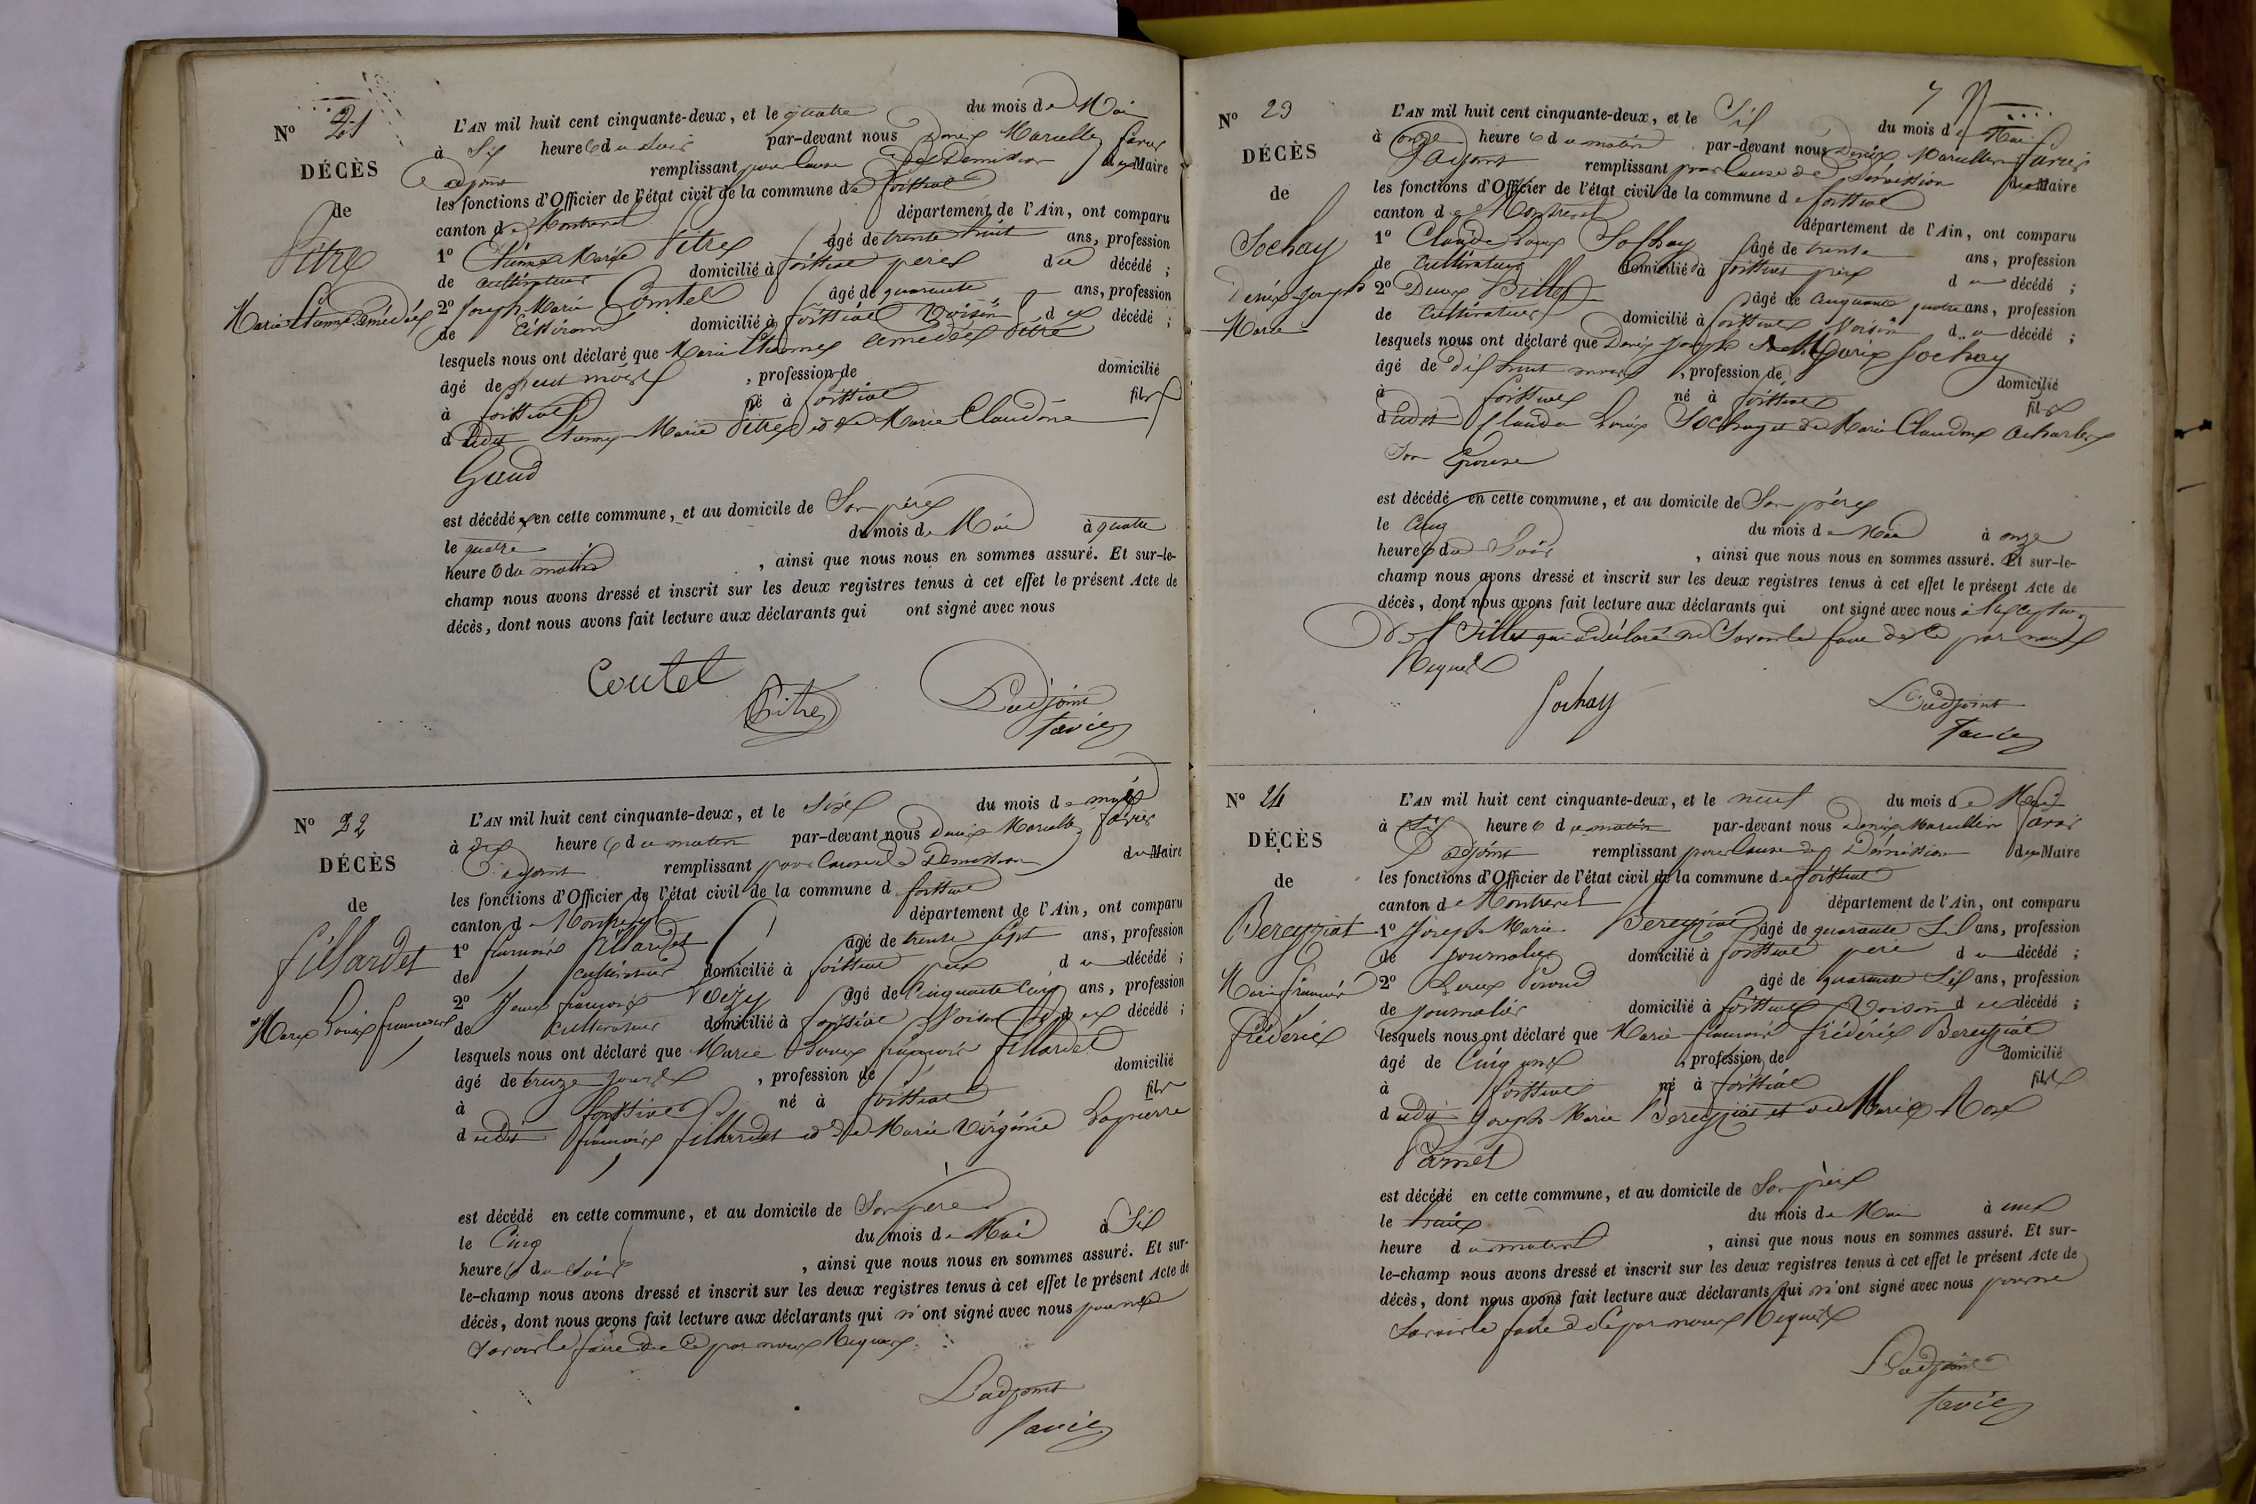 N° 21
DÉCÈS
de
Pitre
Marie Etienne Amédée
L'AN mil huit cent cinquante-deux, et le quatre du mois de Mai
à Six heures du soir par-devant nous Denis Marcellin favier
adjoint remplissant pour cause de Démission du Maire
les fonctions d'Officier de l'état civil de la commune de foissiat
canton de Montrevel département de l'Ain, ont comparu
1° Etienne Marie Pitre âgé de trente huit ans, profession
de cultivateur domicilié à foissiat père du décédé ;
2° Joseph Marie Coutel âgé de quarante ans, profession
de domicilié à foissiat Voisin du décédé ;
lesquels nous ont déclaré que Marie Etienne amédée Pitre
âgé de neuf mois , profession de domicilié
à foissiat né à foissiat fils
dudit Etienne Marie Pitre et de Marie Claudine
Gaud
est décédé en cette commune, et au domicile de Son père
le quatre du mois de Mai à quatre
heures du matin , ainsi que nous nous en sommes assuré. Et sur-le-
champ nous avons dressé et inscrit sur les deux registres tenus à cet effet le présent Acte de
décès, dont nous avons fait lecture aux déclarants qui ont signé avec nous
Coutel
Pitre
L'adjoint
favier
N° 22
DÉCÈS
de
fillardet
Marie Louis francois
L'AN mil huit cent cinquante-deux, et le Six du mois de mai
à dix heures du matin par-devant nous Denis Marcellin favier
adjoint remplissant pour cause de Démission du Maire
les fonctions d'Officier de l'état civil de la commune d foissiat
canton de Montrevel département de l'Ain, ont comparu
1° francois fillardet âgé de trente sept ans, profession
de cultivateur domicilié à foissiat père du décédé ;
2° Jean francois âgé de Cinquante Cinq ans, profession
de cultivateur domicilié à foissiat Voisin du décédé ;
lesquels nous ont déclaré que Marie Louis francois fillardet
âgé de treize jours , profession de domicilié
à foissiat né à foissiat fils
dudit francois fillardet et de Marie Virginie Laguerre
est décédé en cette commune, et au domicile de Son père
le Cinq du mois de Mai à Six
heures du Soir , ainsi que nous nous en sommes assuré. Et sur-
le-champ nous avons dressé et inscrit sur les deux registres tenus à cet effet le présent Acte de
décès, dont nous avons fait lecture aux déclarants qui n'ont signé avec nous pour ne
Savoir le faire de ce par nous Requis
L'adjoint
favier
7
N° 23
DÉCÈS
de
Sochay
Denis Joseph
Marie
L'AN mil huit cent cinquante-deux, et le Six du mois de Mai
à onze heures du matin par-devant nous Denis Marcellin favier
L'adjoint remplissant pour Cause de Démission du Maire
les fonctions d'Officier de l'état civil de la commune de foissiat
canton de Montrevel département de l'Ain, ont comparu
1° Claude Louis Sochay âgé de trente ans, profession
de Cultivateur domicilié à foissiat père du décédé ;
2° Denis Billet âgé de Cinquante quatre ans, profession
de Cultivateur domicilié à foissiat Voisin du décédé ;
lesquels nous ont déclaré que Denis Joseph Marie Sochay
âgé de dix huit mois , profession de domicilié
à foissiat né à foissiat fils
dudit Claude Louis Sochay et de Marie Claudine
Son Epouse
est décédé en cette commune, et au domicile de Son père
le Cinq du mois de Mai à onze
heures du Soir , ainsi que nous nous en sommes assuré. Et sur-le-
champ nous avons dressé et inscrit sur les deux registres tenus à cet effet le présent Acte de
décès, dont nous avons fait lecture aux déclarants qui ont signé avec nous à l'exception
de Billet qui a déclaré ne Savoir le faire de ce par nous
Requis
Sochay
L'adjoint
favier
N° 24
DÉCÈS
de
Bereyziat
Marie francois
frédéric
L'AN mil huit cent cinquante-deux, et le neuf du mois de Mai
à Six heures du matin par-devant nous Denis Marcellin favier
L'adjoint remplissant pour Cause de Démission du Maire
les fonctions d'Officier de l'état civil de la commune de foissiat
canton de Montrevel département de l'Ain, ont comparu
1° Joseph Marie Bereyziat âgé de quarante Six ans, profession
de journalier domicilié à foissiat père du décédé ;
2° Denis âgé de quarante Six ans, profession
de journalier domicilié à foissiat Voisin du décédé ;
lesquels nous ont déclaré que Marie francois frédéric Bereyziat
âgé de Cinq ans , profession de domicilié
à foissiat né à foissiat fils
dudit Joseph Marie Bereyziat et de Marie Rose
Parnet
est décédé en cette commune, et au domicile de Son père
le huit du mois de Mai à une
heure du matin , ainsi que nous nous en sommes assuré. Et sur-
le-champ nous avons dressé et inscrit sur les deux registres tenus à cet effet le présent Acte de
décès, dont nous avons fait lecture aux déclarants qui n'ont signé avec nous pour ne
Savoir le faire de ce par nous Requis
L'adjoint
favier